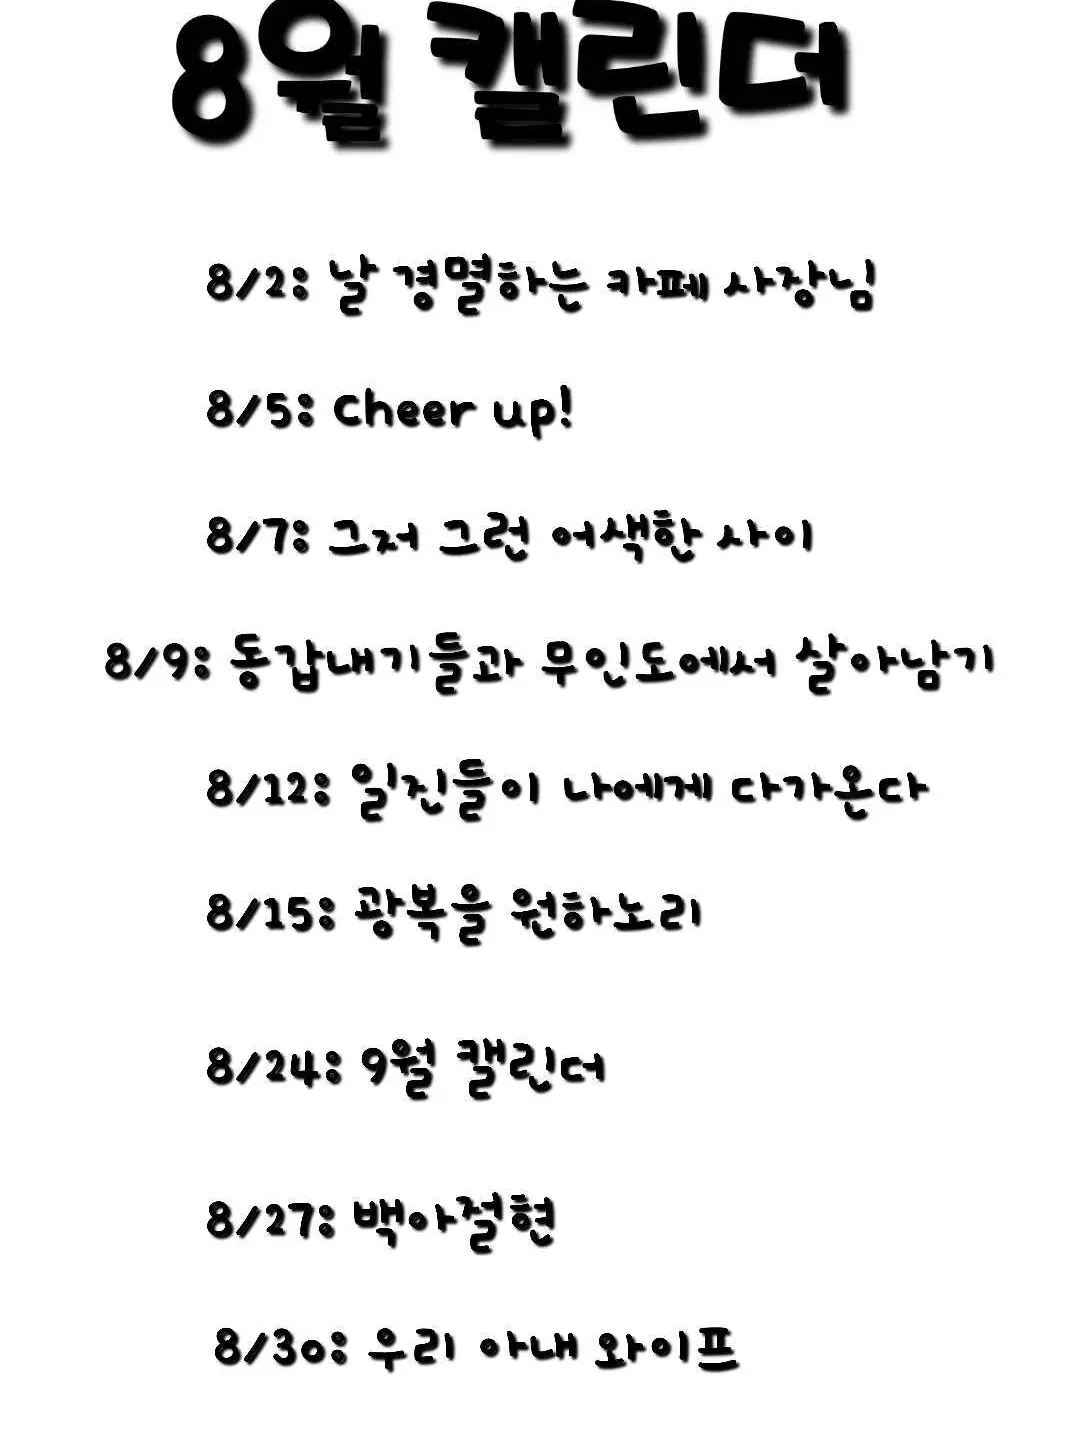 8월 캘린더
8/2: 날 경멸하는 카페 사장님
8/5: Cheer up!
8/7: 그저 그런 어색한 사이
8/9: 동갑내기들과 무인도에서 살아남기
8/12: 일진들이 나에게 다가온다
8/15: 광복을 원하노리
8/24: 9월 캘린더
8/27: 백아절현
8/30: 우리 아내 와이프